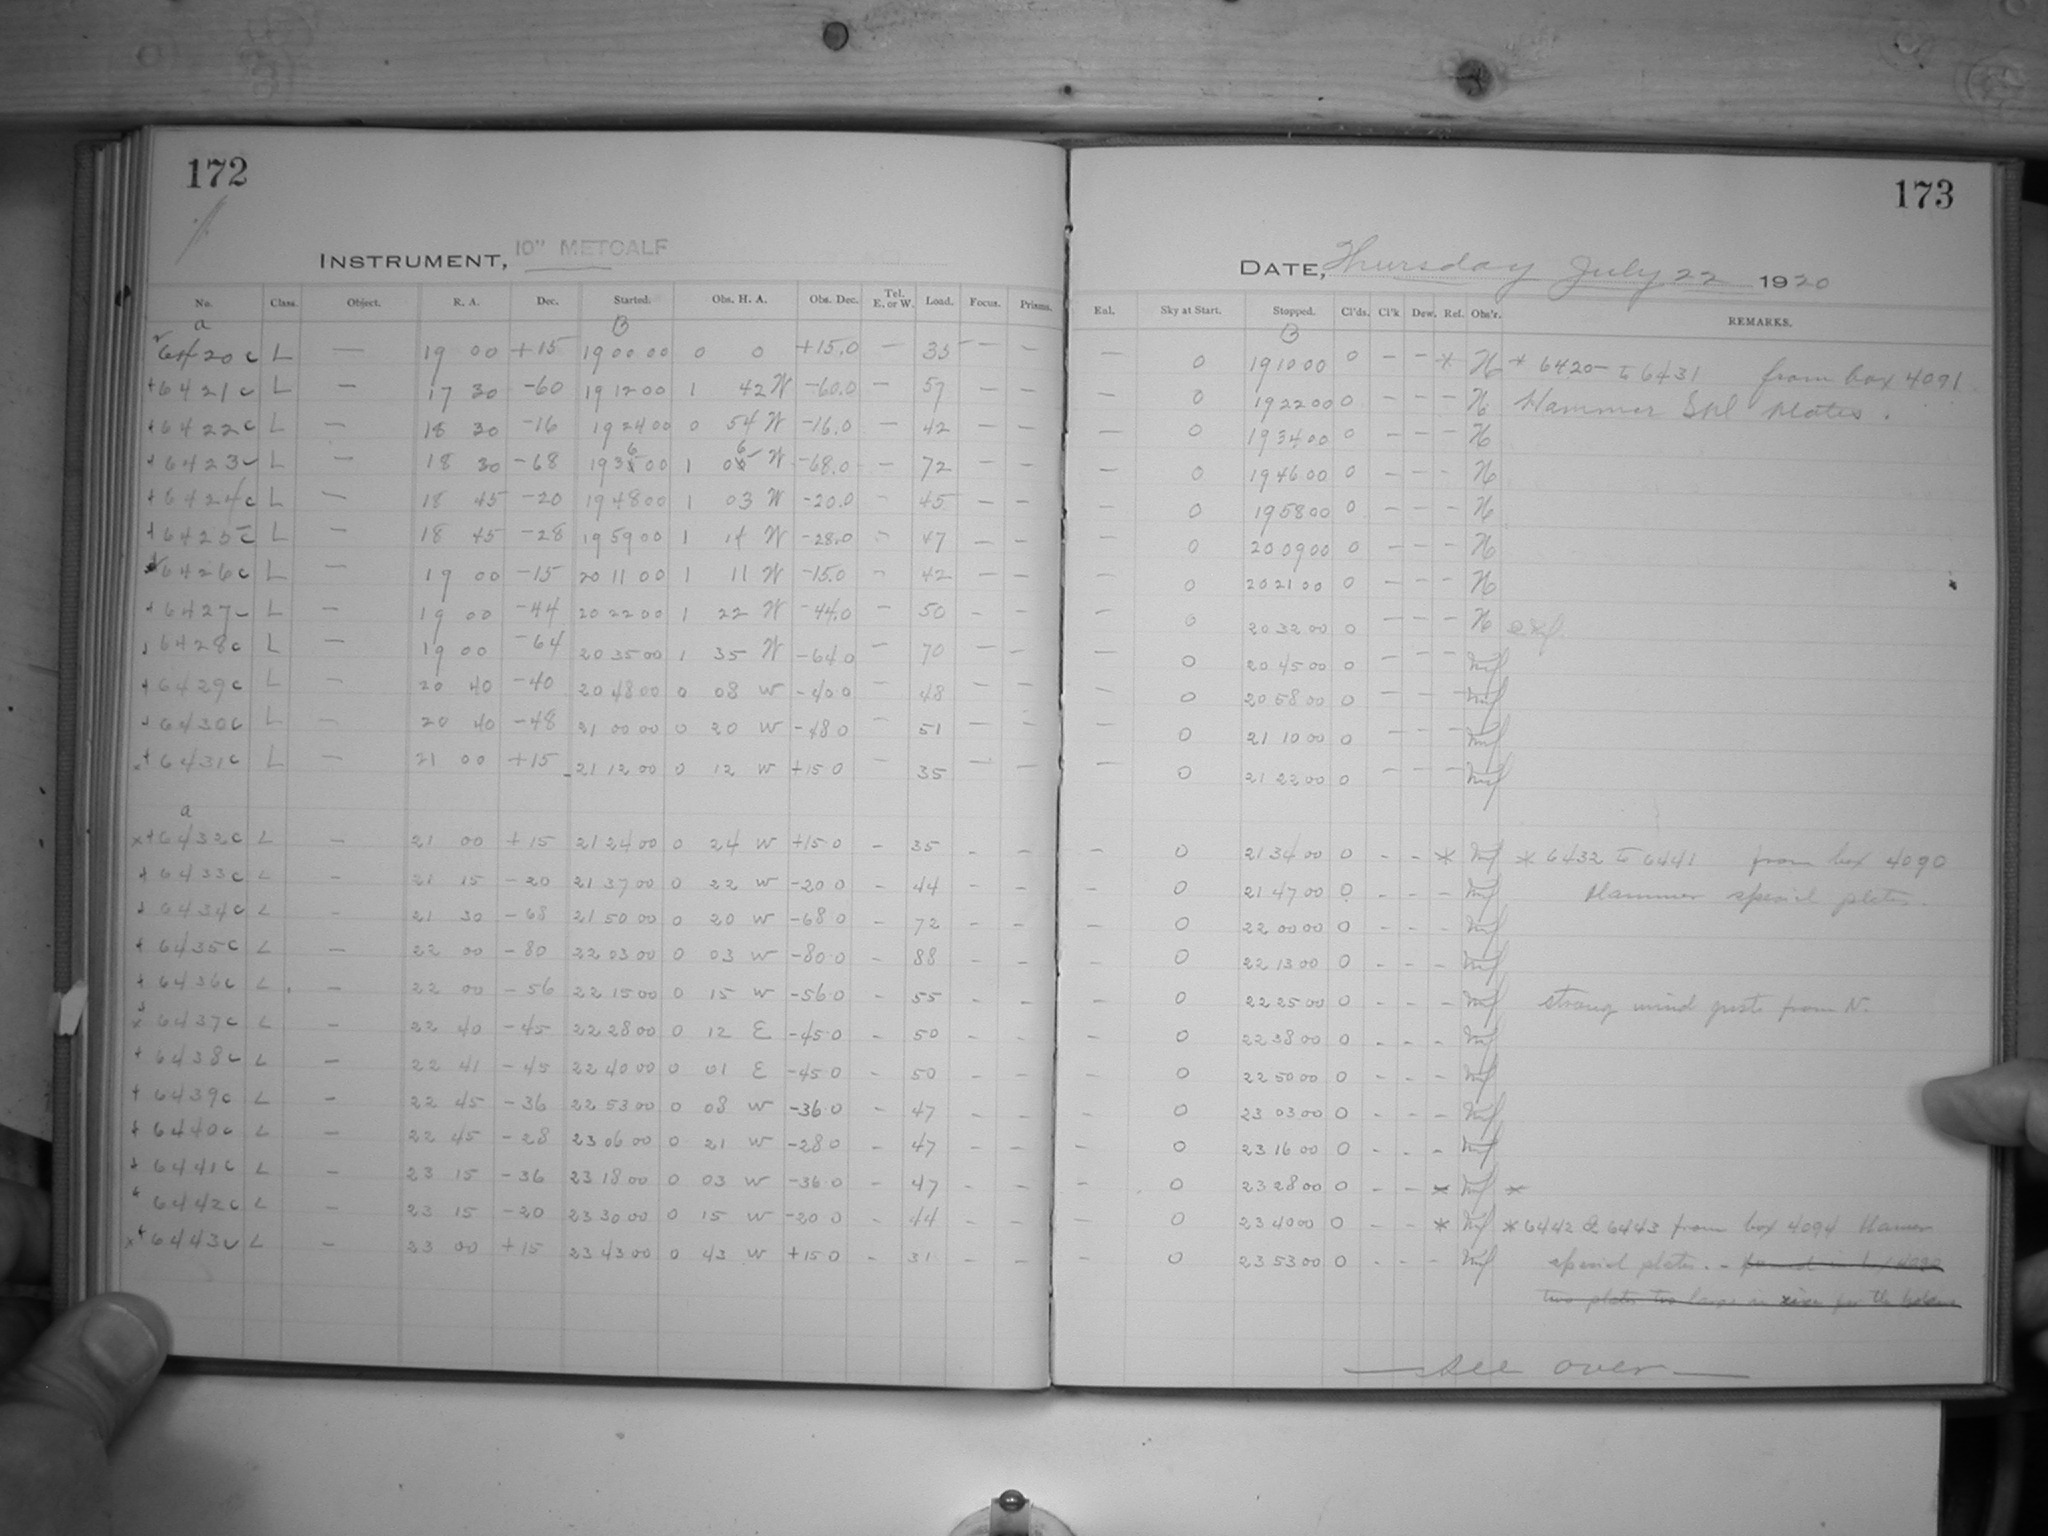 172
INSTRUMENT, 10" METCALF
No. Class. Object. R. A. Dec. Started. Obs. H. A. Obs. Dec. Tel. E. or W. Load. Focus. Prisms.
a B
6420c L — 19 00 +15 19 00 00 0 0 +15.0 — 35 — —
+6421c L — 17 30 -60 19 12 00 1 42 W -60.0 — 57 — —
+6422c L — 18 30 -16 19 24 00 0 54 W -16.0 — 42 — —
+6423c L — 18 30 -68 19 36 00 1 06 W -68.0 — 72 — —
+6424c L — 18 45 -20 19 48 00 1 03 W -20.0 — 45 — —
+6425c L — 18 45 -28 19 59 00 1 14 W -28.0 — 47 — —
+6426c L — 19 00 -15 20 11 00 1 11 W -15.0 — 42 — —
+6427c L — 19 00 -44 20 22 00 1 22 W -44.0 — 50 — —
+6428c L — 19 00 -64 20 35 00 1 35 W -64 0 — 70 — —
+6429c L — 20 40 -40 20 48 00 0 08 W -40 0 — 48 — —
+6430c L — 20 40 -48 21 00 00 0 20 W -48 0 — 51 — —
x+6431c L — 21 00 +15 21 12 00 0 12 W +15 0 — 35 — —
a
x+6432c L — 21 00 +15 21 24 00 0 24 W +15 0 — 35 — —
+6433c L — 21 15 -20 21 37 00 0 22 W -20 0 — 44 — —
+6434c L — 21 30 -68 21 50 00 0 20 W -68 0 — 72 — —
+6435c L — 22 00 -80 22 03 00 0 03 W -80 0 — 88 — —
+6436c L — 22 00 -56 22 15 00 0 15 W -56 0 — 55 — —
x+6437c L — 22 40 -45 22 28 00 0 12 E -45 0 — 50 — —
+6438c L — 22 41 -45 22 40 00 0 01 E -45 0 — 50 — —
+6439c L — 22 45 -36 22 53 00 0 08 W -36 0 — 47 — —
+6440c L — 22 45 -28 23 06 00 0 21 W -28 0 — 47 — —
+6441c L — 23 15 -36 23 18 00 0 03 W -36 0 — 47 — —
+6442c L — 23 15 -20 23 30 00 0 15 W -20 0 — 44 — —
x+6443c L — 23 00 +15 23 43 00 0 43 W +15 0 — 31 — —
173
DATE, Thursday July 22 1920
Enl. Sky at Start. Stopped. Cl'ds. Cl'k Dew. Ref. Obs'r. REMARKS.
B
— 0 19 10 00 0 — — * N * 6420 to 6431 from box 4091
— 0 19 22 00 0 — — — N Hammer Spl plates.
— 0 19 34 00 0 — — — N
— 0 19 46 00 0 — — — N
— 0 19 58 00 0 — — — N
— 0 20 09 00 0 — — — N
— 0 20 21 00 0 — — — N
— 0 20 32 00 0 — — — N
— 0 20 45 00 0 — — —
— 0 20 58 00 0 — — —
— 0 21 10 00 0
— 0 21 22 00 0 — — —
— 0 21 34 00 0 — — * * 6432 to 6441 from box 4090
— 0 21 47 00 0 — — — Hammer special plates.
— 0 22 00 00 0 — — —
— 0 22 13 00 0 — — —
— 0 22 25 00 0 — — — strong wind gusts from N.
— 0 22 38 00 0 — — —
— 0 22 50 00 0 — — —
— 0 23 03 00 0 — — —
— 0 23 16 00 0 — — —
— 0 23 28 00 0 — — * *
— 0 23 40 00 0 — — * * 6442 & 6443 from box 4094 Hamer
— 0 23 53 00 0 — — — special plates. —
two plates too large in size for the holders
— see over —